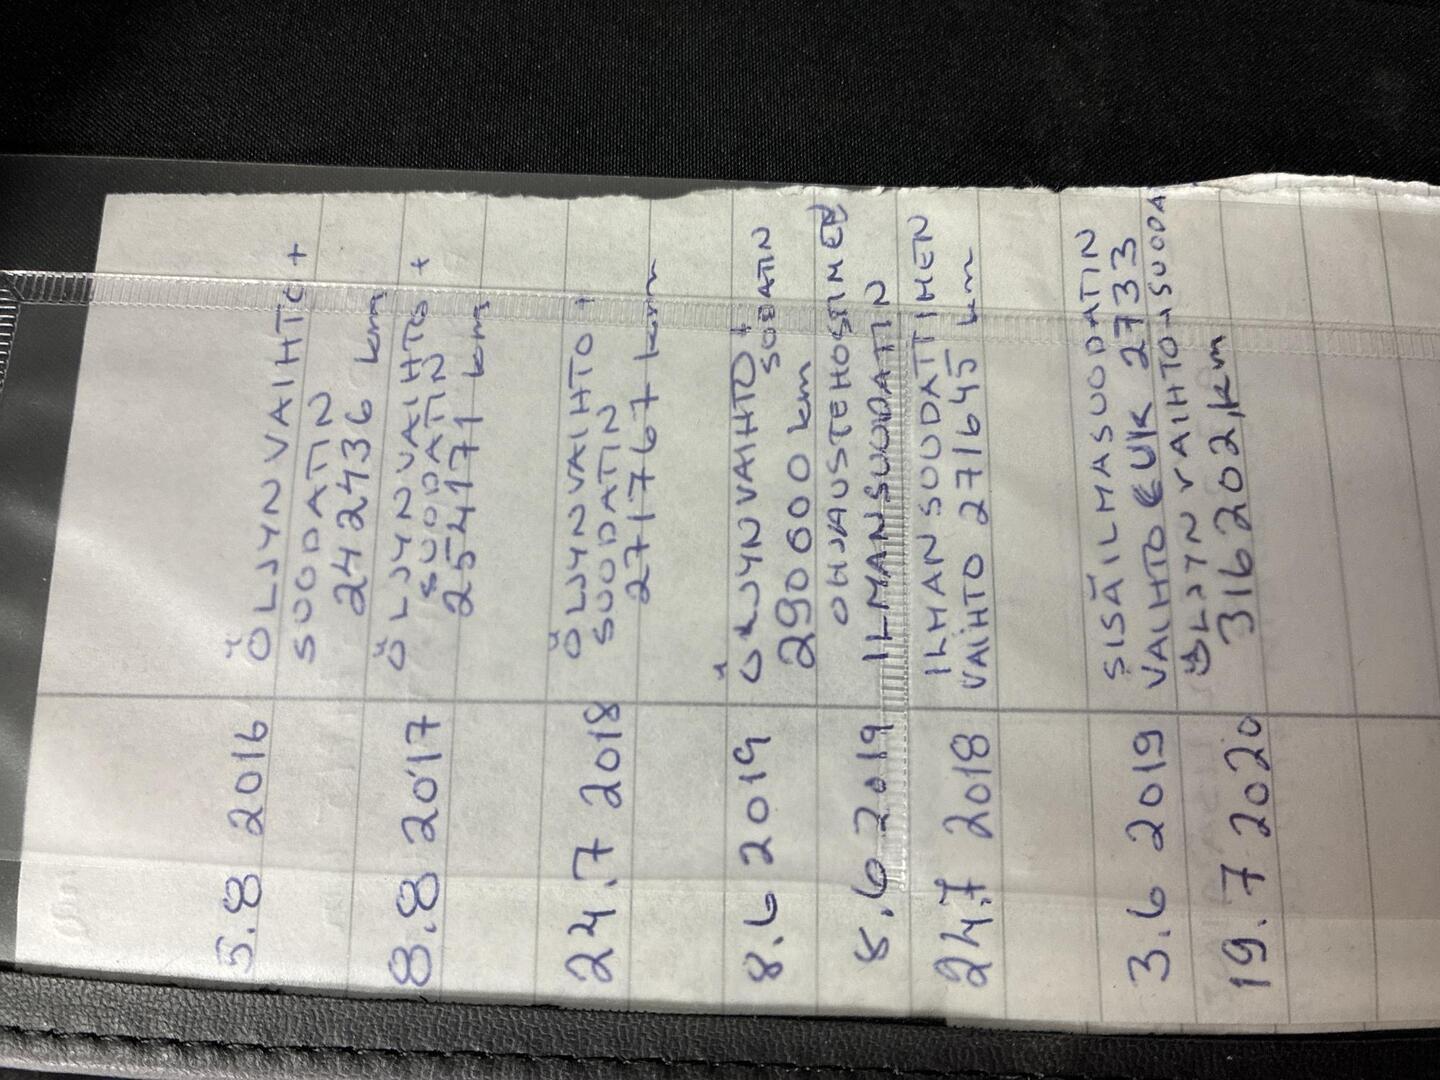 5.8 2016 ÖLJYN VAIHTO +
SUODATIN
242436 km
8.8 2017 ÖLJYN VAIHTO +
SUODATIN
254171 km
24.7 2018 ÖLJYN VAIHTO +
SUODATIN
271767 km
8.6 2019 ÖLJYN VAIHTO +
SUODATIN
290600 km
OHJAUSTEHOSTIMEN
8.6 2019 ILMANSUODATIN
24.7 2018 ILMANSUODATTIMEN
VAIHTO 271645 km
3.6 2019 SISÄILMASUODATIN
VAIHTO CUK 2733
19.7 2020 ÖLJYN VAIHTO+SUODA
316202 km